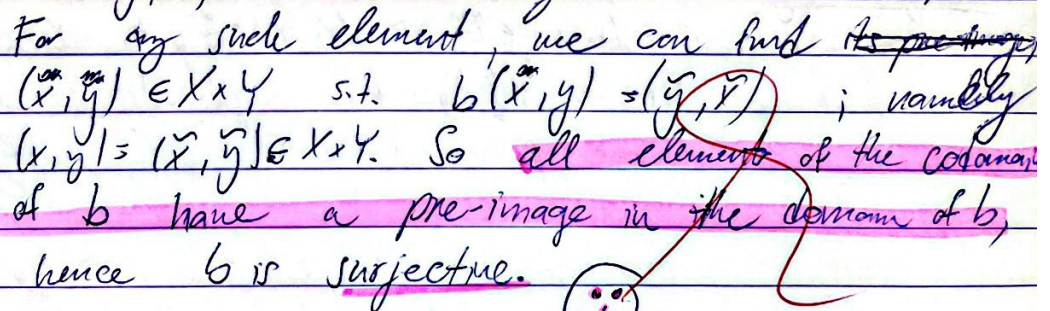 For any such element, we can find its pre-image,
(x, y) ∈ X × Y s.t. b(x, y) = (ỹ, x̃) ; namely
(x, y) = (x̃, ỹ) ∈ X × Y. So all elements of the codomain
of b have a pre-image in the domain of b,
hence b is surjective.